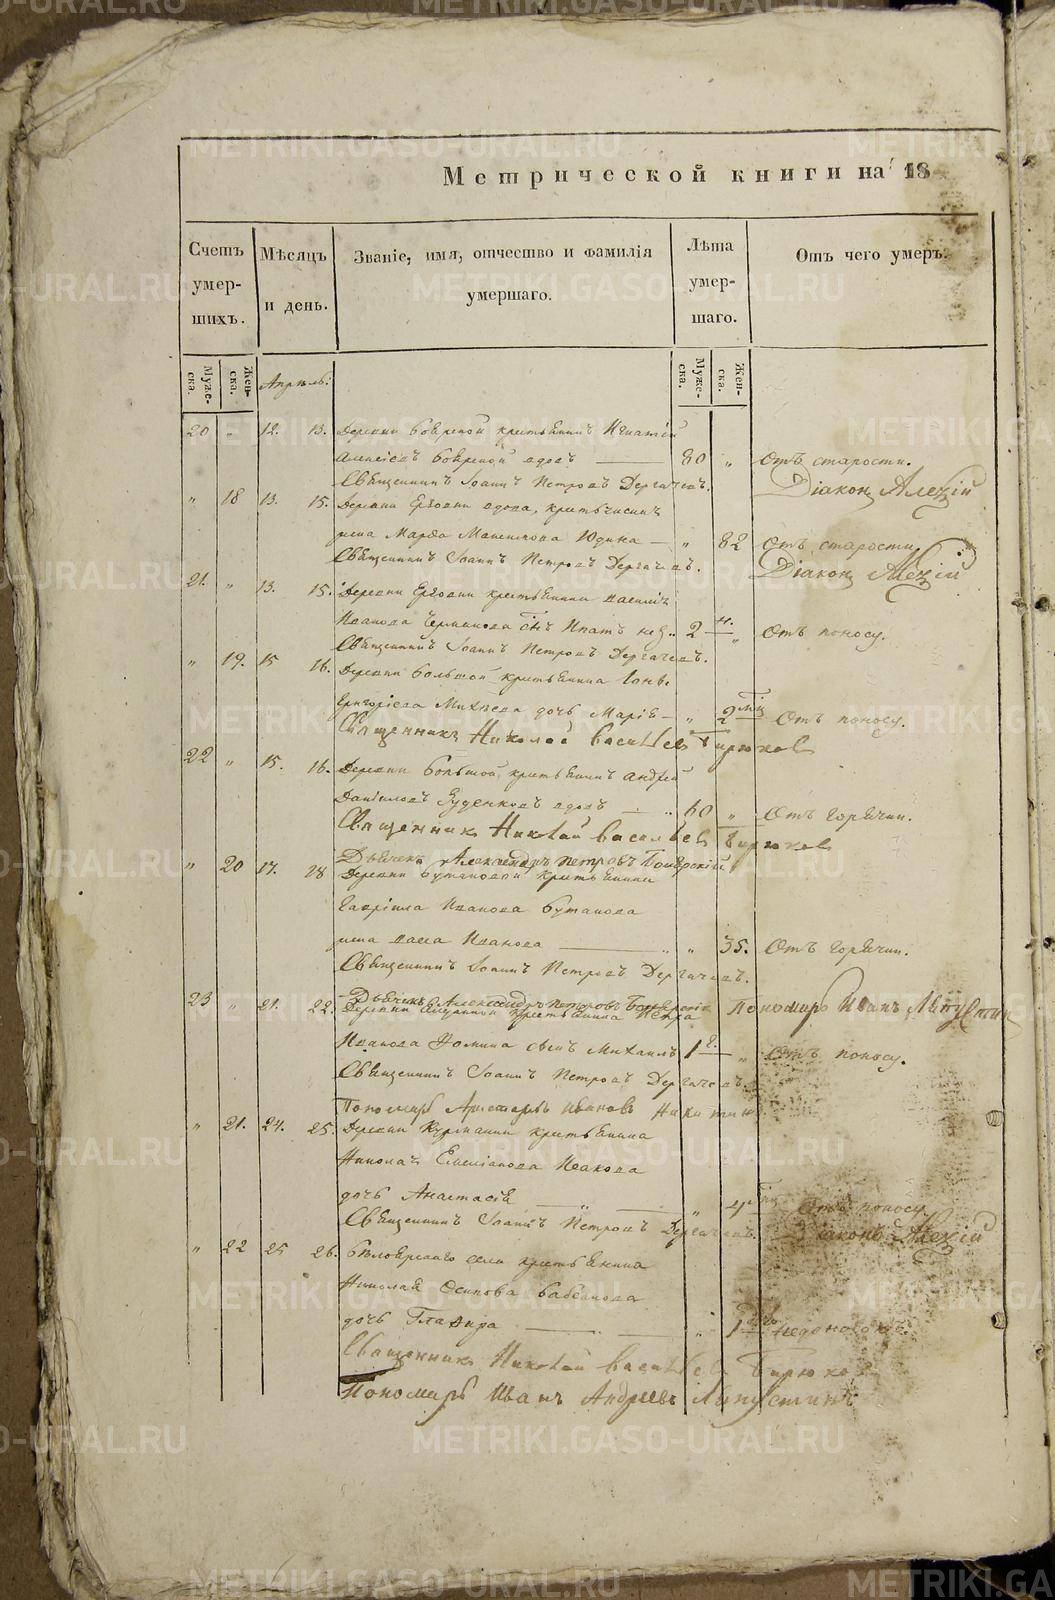 Метрической книги на 18
Счетъ умер-шихъ.
Мѣсяцъ и день.
Званіе, имя, отчество и фамилія умершаго.
Лѣта умер-шаго.
Отъ чего умеръ.
Муже-ска.
Жен-ска.
Апрѣль:
Муже-ска.
Жен-ска.
20 „ 12. 13. Деревни Боярской крестьянинъ Игнатій
Алексѣевъ вдовъ 80 „ Отъ старости.
Священникъ Іоаннъ Петровъ Дергачевъ. Діаконъ Алексій
„ 18 13. 15. Деревни вдова, крестьянская
жена Марфа Юдина „ 82 Отъ старости
Священникъ Іоаннъ Петровъ Дергачевъ. Діаконъ Алексій
21. „ 13. 15. Деревни крестьянина Василія
Иванова сынъ Ипатъ 2 н. „ Отъ поносу.
Священникъ Іоаннъ Петровъ Дергачевъ.
„ 19. 15 16. Деревни Большой крестьянина
Григоріева дочь Марія „ 2 Отъ поносу.
Священникъ Николай Васильевъ Бирюковъ
22 „ 15. 16. Деревни Большой крестьянинъ Андрей
Даниловъ вдовъ 60 „ Отъ горячки.
Священникъ Николай Васильевъ Бирюковъ
Дьячекъ Александръ Петровъ Боярскій
„ 20 17. 28 Деревни Бутаковой крестьянина
Гавріила Иванова Бутакова
жена Иванова „ 35. Отъ горячки.
Священникъ Іоаннъ Петровъ Дергачевъ.
Дьячекъ Александръ Петровъ Боярскій Пономарь Иванъ
23 „ 21. 22. Деревни крестьянина Петра
Иванова Фомина сынъ Михаилъ 1 „ Отъ поносу.
Священникъ Іоаннъ Петровъ Дергачевъ.
Пономарь Аристархъ Ивановъ Никитин
„ 21. 24. 25. Деревни крестьянина
Николая Емеліанова Исакова
дочь Анастасія „ 4 Отъ поносу.
Священникъ Іоаннъ Петровъ Дергачевъ. Діаконъ Алексій
„ 22 25 26. села крестьянина
Николая Осипова
дочь Глафира „ 1
Священникъ Николай Васильевъ Бирюков
Пономарь Иванъ Андреевъ Лапустинъ
METRIKI.GASO-URAL.RU